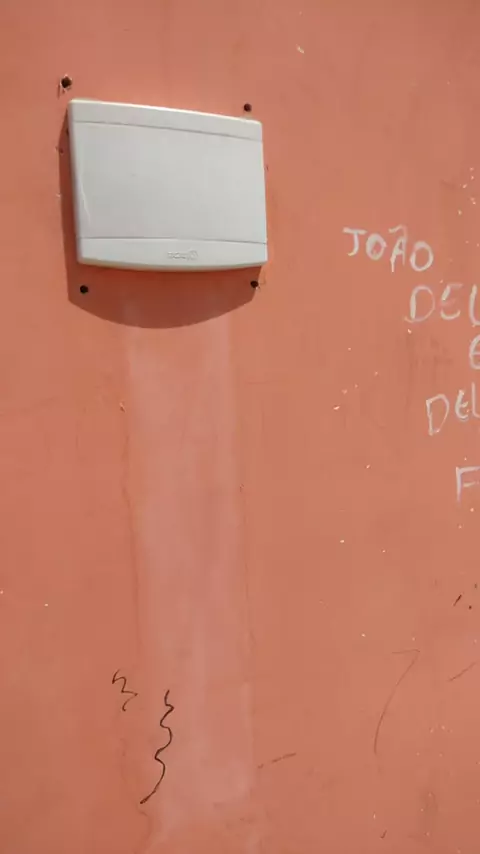 JOÃO
DEL
E
DEL
F